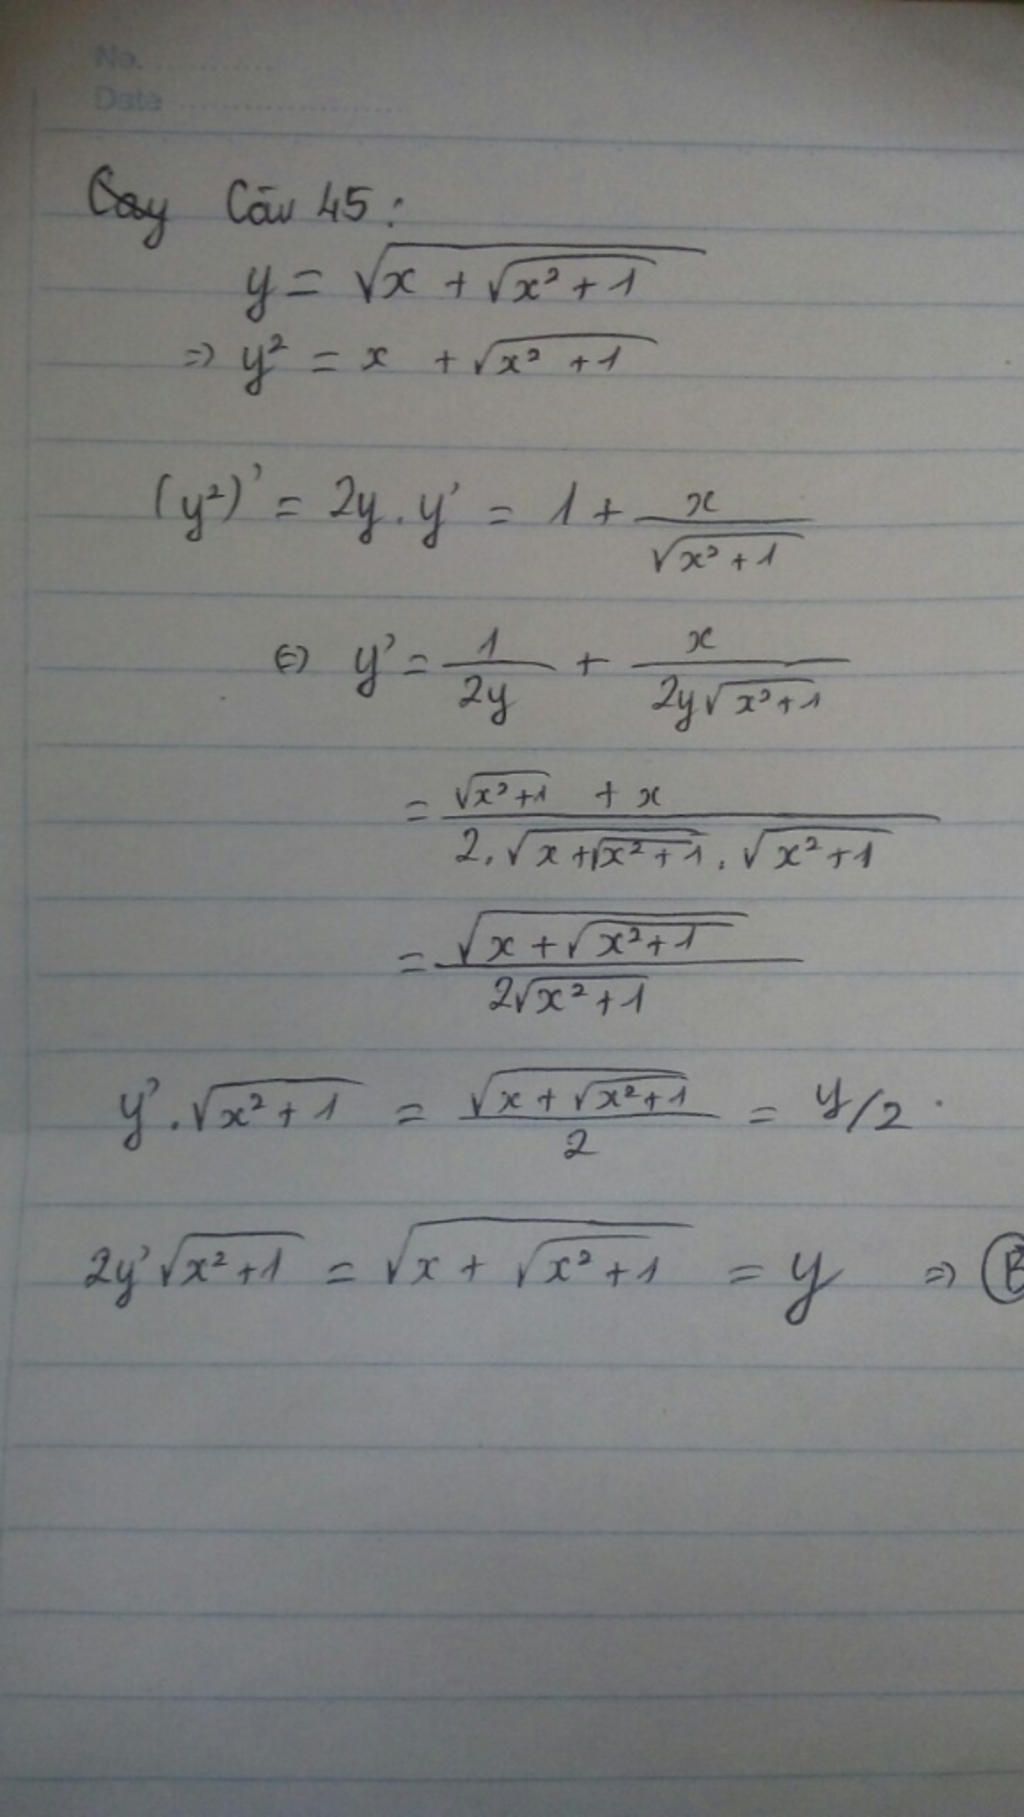 No. ............
Date ......................
Câu 45:
y = √(x + √(x² + 1))
⇒ y² = x + √(x² + 1)
(y²)' = 2y . y' = 1 + x/√(x² + 1)
⇔ y' = 1/2y + x/(2y√(x² + 1))
= (√(x² + 1) + x)/(2 . √(x + √(x² + 1)) . √(x² + 1))
= √(x + √(x² + 1))/(2√(x² + 1))
y' . √(x² + 1) = √(x + √(x² + 1))/2 = y/2 .
2y'√(x² + 1) = √(x + √(x² + 1)) = y ⇒